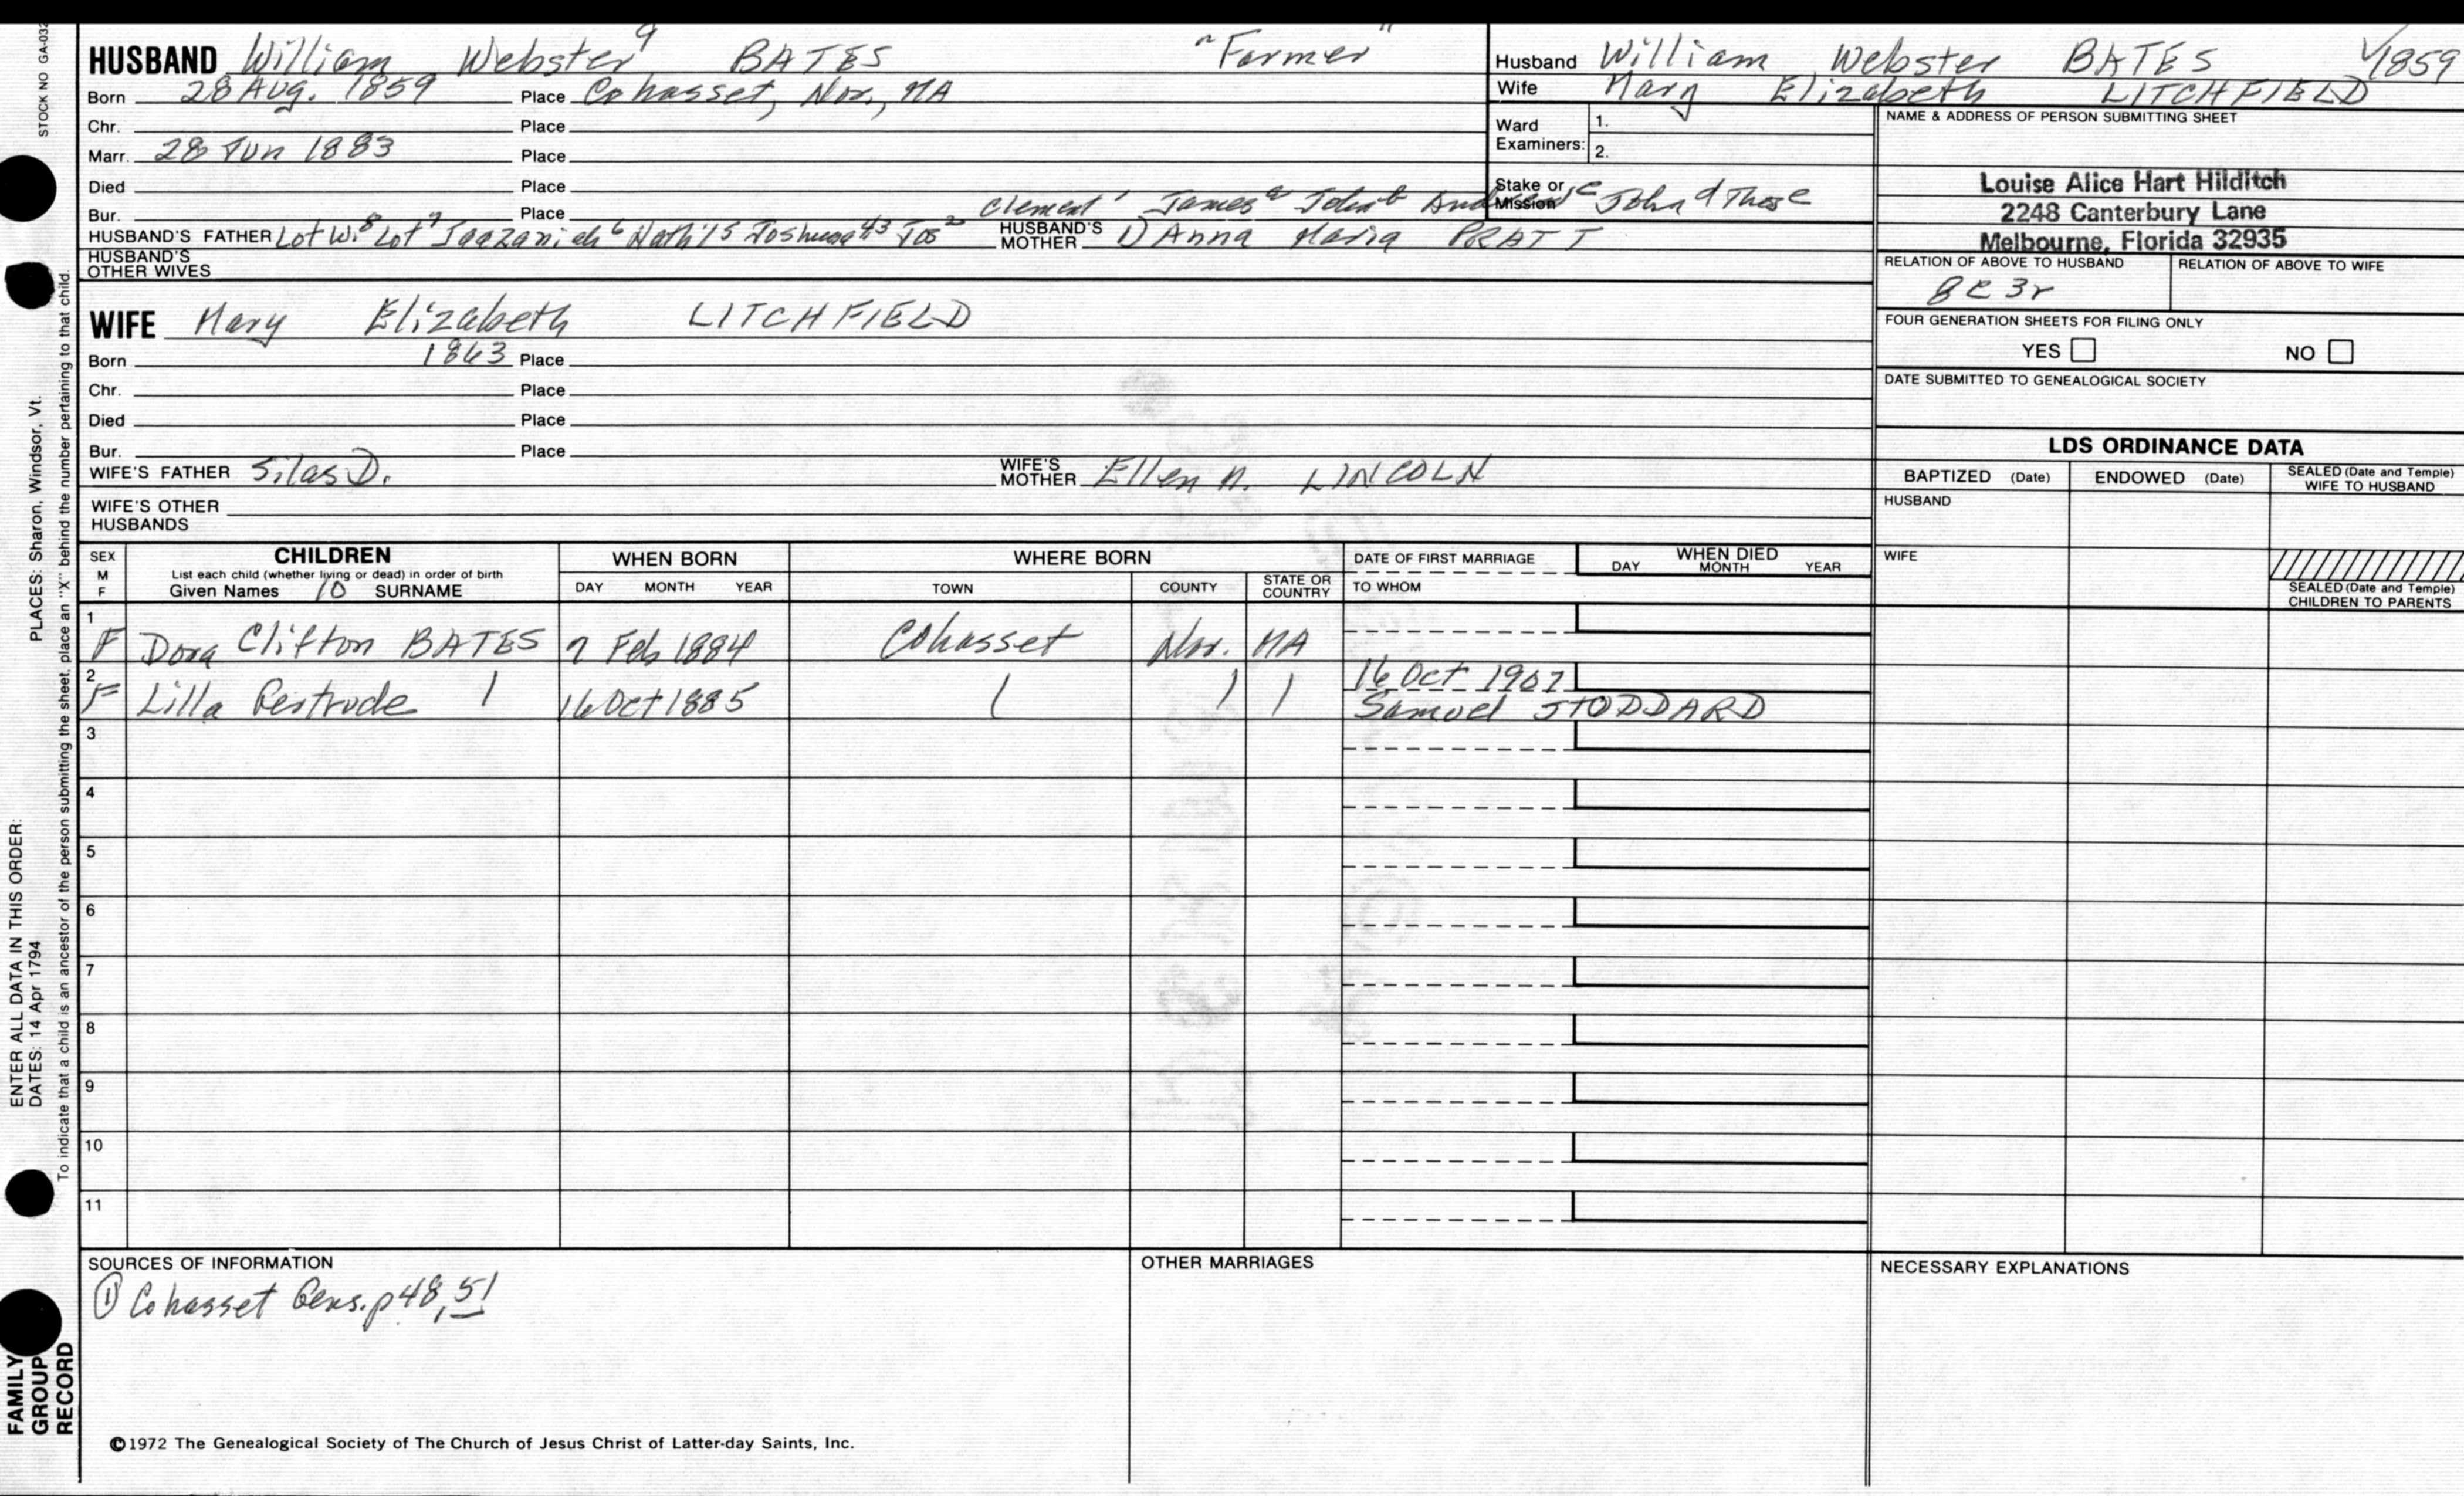 STOCK NO GA-032
PLACES: Sharon, Windsor, Vt.
ENTER ALL DATA IN THIS ORDER:
DATES: 14 Apr 1794
To indicate that a child is an ancestor of the person submitting the sheet, place an "X" behind the number pertaining to that child.
FAMILY GROUP RECORD
HUSBAND William Webster 9 BATES "Farmer"
Born 28 Aug. 1859 Place Cohasset, Nor., MA
Chr. Place
Marr. 28 Jun 1883 Place
Died Place
Bur. Place
Clement 1 James a John b c John d Thos e
HUSBAND'S FATHER Lot W. 8 Lot 7 Jaazaniah 6 Nath'l 5 Joshua 43 Jos 2 HUSBAND'S MOTHER 1) Anna Maria PRATT
HUSBAND'S OTHER WIVES
Husband William Webster BATES 1859
Wife Mary Elizabeth LITCHFIELD
Ward Examiners: 1.
2.
Stake or Mission
NAME & ADDRESS OF PERSON SUBMITTING SHEET
Louise Alice Hart Hilditch
2248 Canterbury Lane
Melbourne, Florida 32935
RELATION OF ABOVE TO HUSBAND RELATION OF ABOVE TO WIFE
8c 3r
FOUR GENERATION SHEETS FOR FILING ONLY
YES NO
DATE SUBMITTED TO GENEALOGICAL SOCIETY
WIFE Mary Elizabeth LITCHFIELD
Born 1863 Place
Chr. Place
Died Place
Bur. Place
WIFE'S FATHER Silas D. WIFE'S MOTHER Ellen N. LINCOLN
WIFE'S OTHER HUSBANDS
LDS ORDINANCE DATA
BAPTIZED (Date) ENDOWED (Date) SEALED (Date and Temple) WIFE TO HUSBAND
HUSBAND
WIFE
SEALED (Date and Temple) CHILDREN TO PARENTS
SEX M F CHILDREN List each child (whether living or dead) in order of birth Given Names 10 SURNAME
WHEN BORN DAY MONTH YEAR
WHERE BORN TOWN COUNTY STATE OR COUNTRY
DATE OF FIRST MARRIAGE TO WHOM
WHEN DIED DAY MONTH YEAR
1 F Dora Clifton BATES 7 Feb 1884 Cohasset Nor. MA
2 F Lilla Gertrude 16 Oct 1885 16 Oct 1907
Samuel STODDARD
3
4
5
6
7
8
9
10
11
SOURCES OF INFORMATION
① Cohasset Gens. p 48, 51
OTHER MARRIAGES
NECESSARY EXPLANATIONS
©1972 The Genealogical Society of The Church of Jesus Christ of Latter-day Saints, Inc.